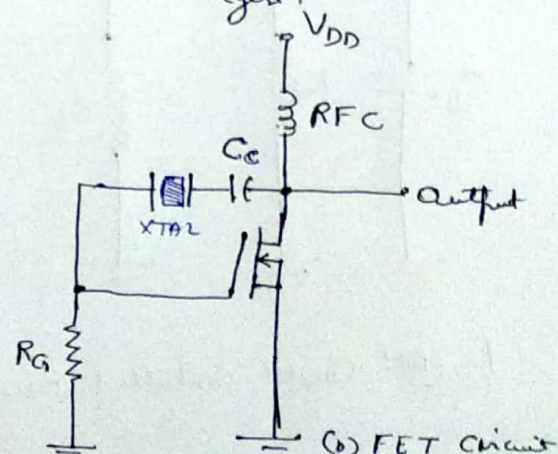 V_DD
RFC
C_c
XTAL
Output
R_G
(b) FET Circuit